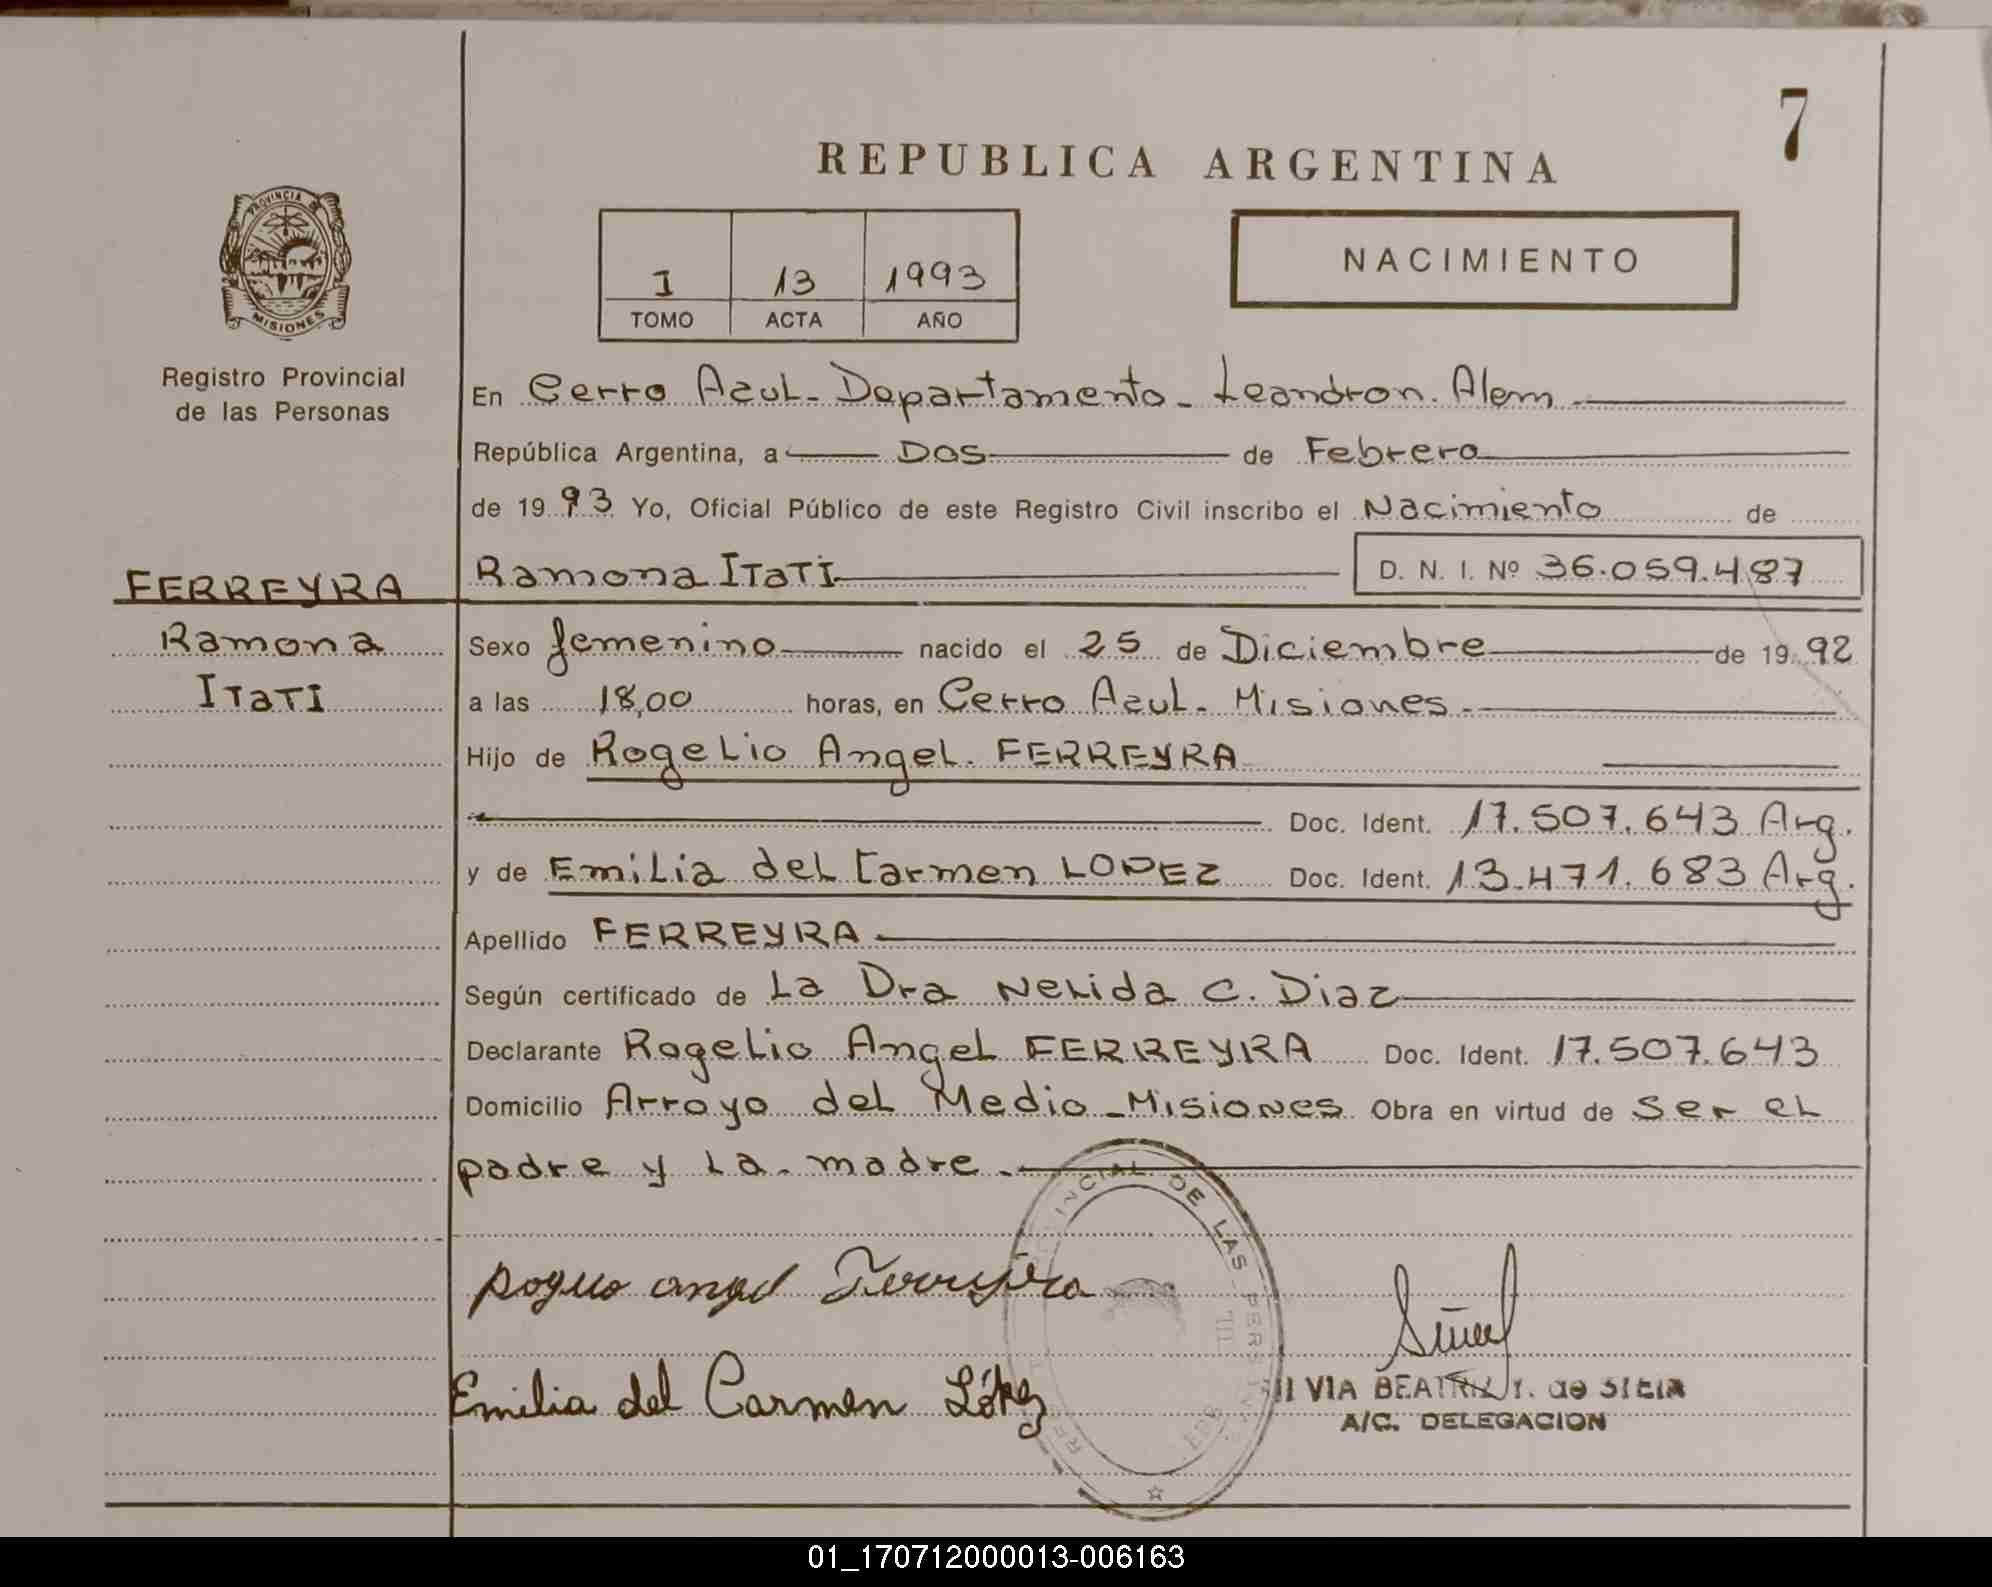 7
REPUBLICA ARGENTINA
PROVINCIA DE
MISIONES
I 13 1993
TOMO ACTA AÑO
NACIMIENTO
Registro Provincial
de las Personas
En Cerro Azul - Departamento - Leandro n. Alem
República Argentina, a Dos de Febrero
de 1993 Yo, Oficial Público de este Registro Civil inscribo el Nacimiento de
FERREYRA
Ramona Itatí D. N. I. Nº 36.059.487
Ramona
Itatí
Sexo femenino nacido el 25 de Diciembre de 1992
a las 18,00 horas, en Cerro Azul - Misiones
Hijo de Rogelio Angel FERREYRA
Doc. Ident. 17.507.643 Arg.
y de Emilia del Carmen LOPEZ Doc. Ident. 13.471.683 Arg.
Apellido FERREYRA
Según certificado de La Dra Nelida C. Diaz
Declarante Rogelio Angel FERREYRA Doc. Ident. 17.507.643
Domicilio Arroyo del Medio - Misiones Obra en virtud de ser el
padre y la madre.
angel Ferreyra
Emilia del Carmen López
DE LAS PERS
VIA BEATRIZ de
A/C. DELEGACION
01_170712000013-006163